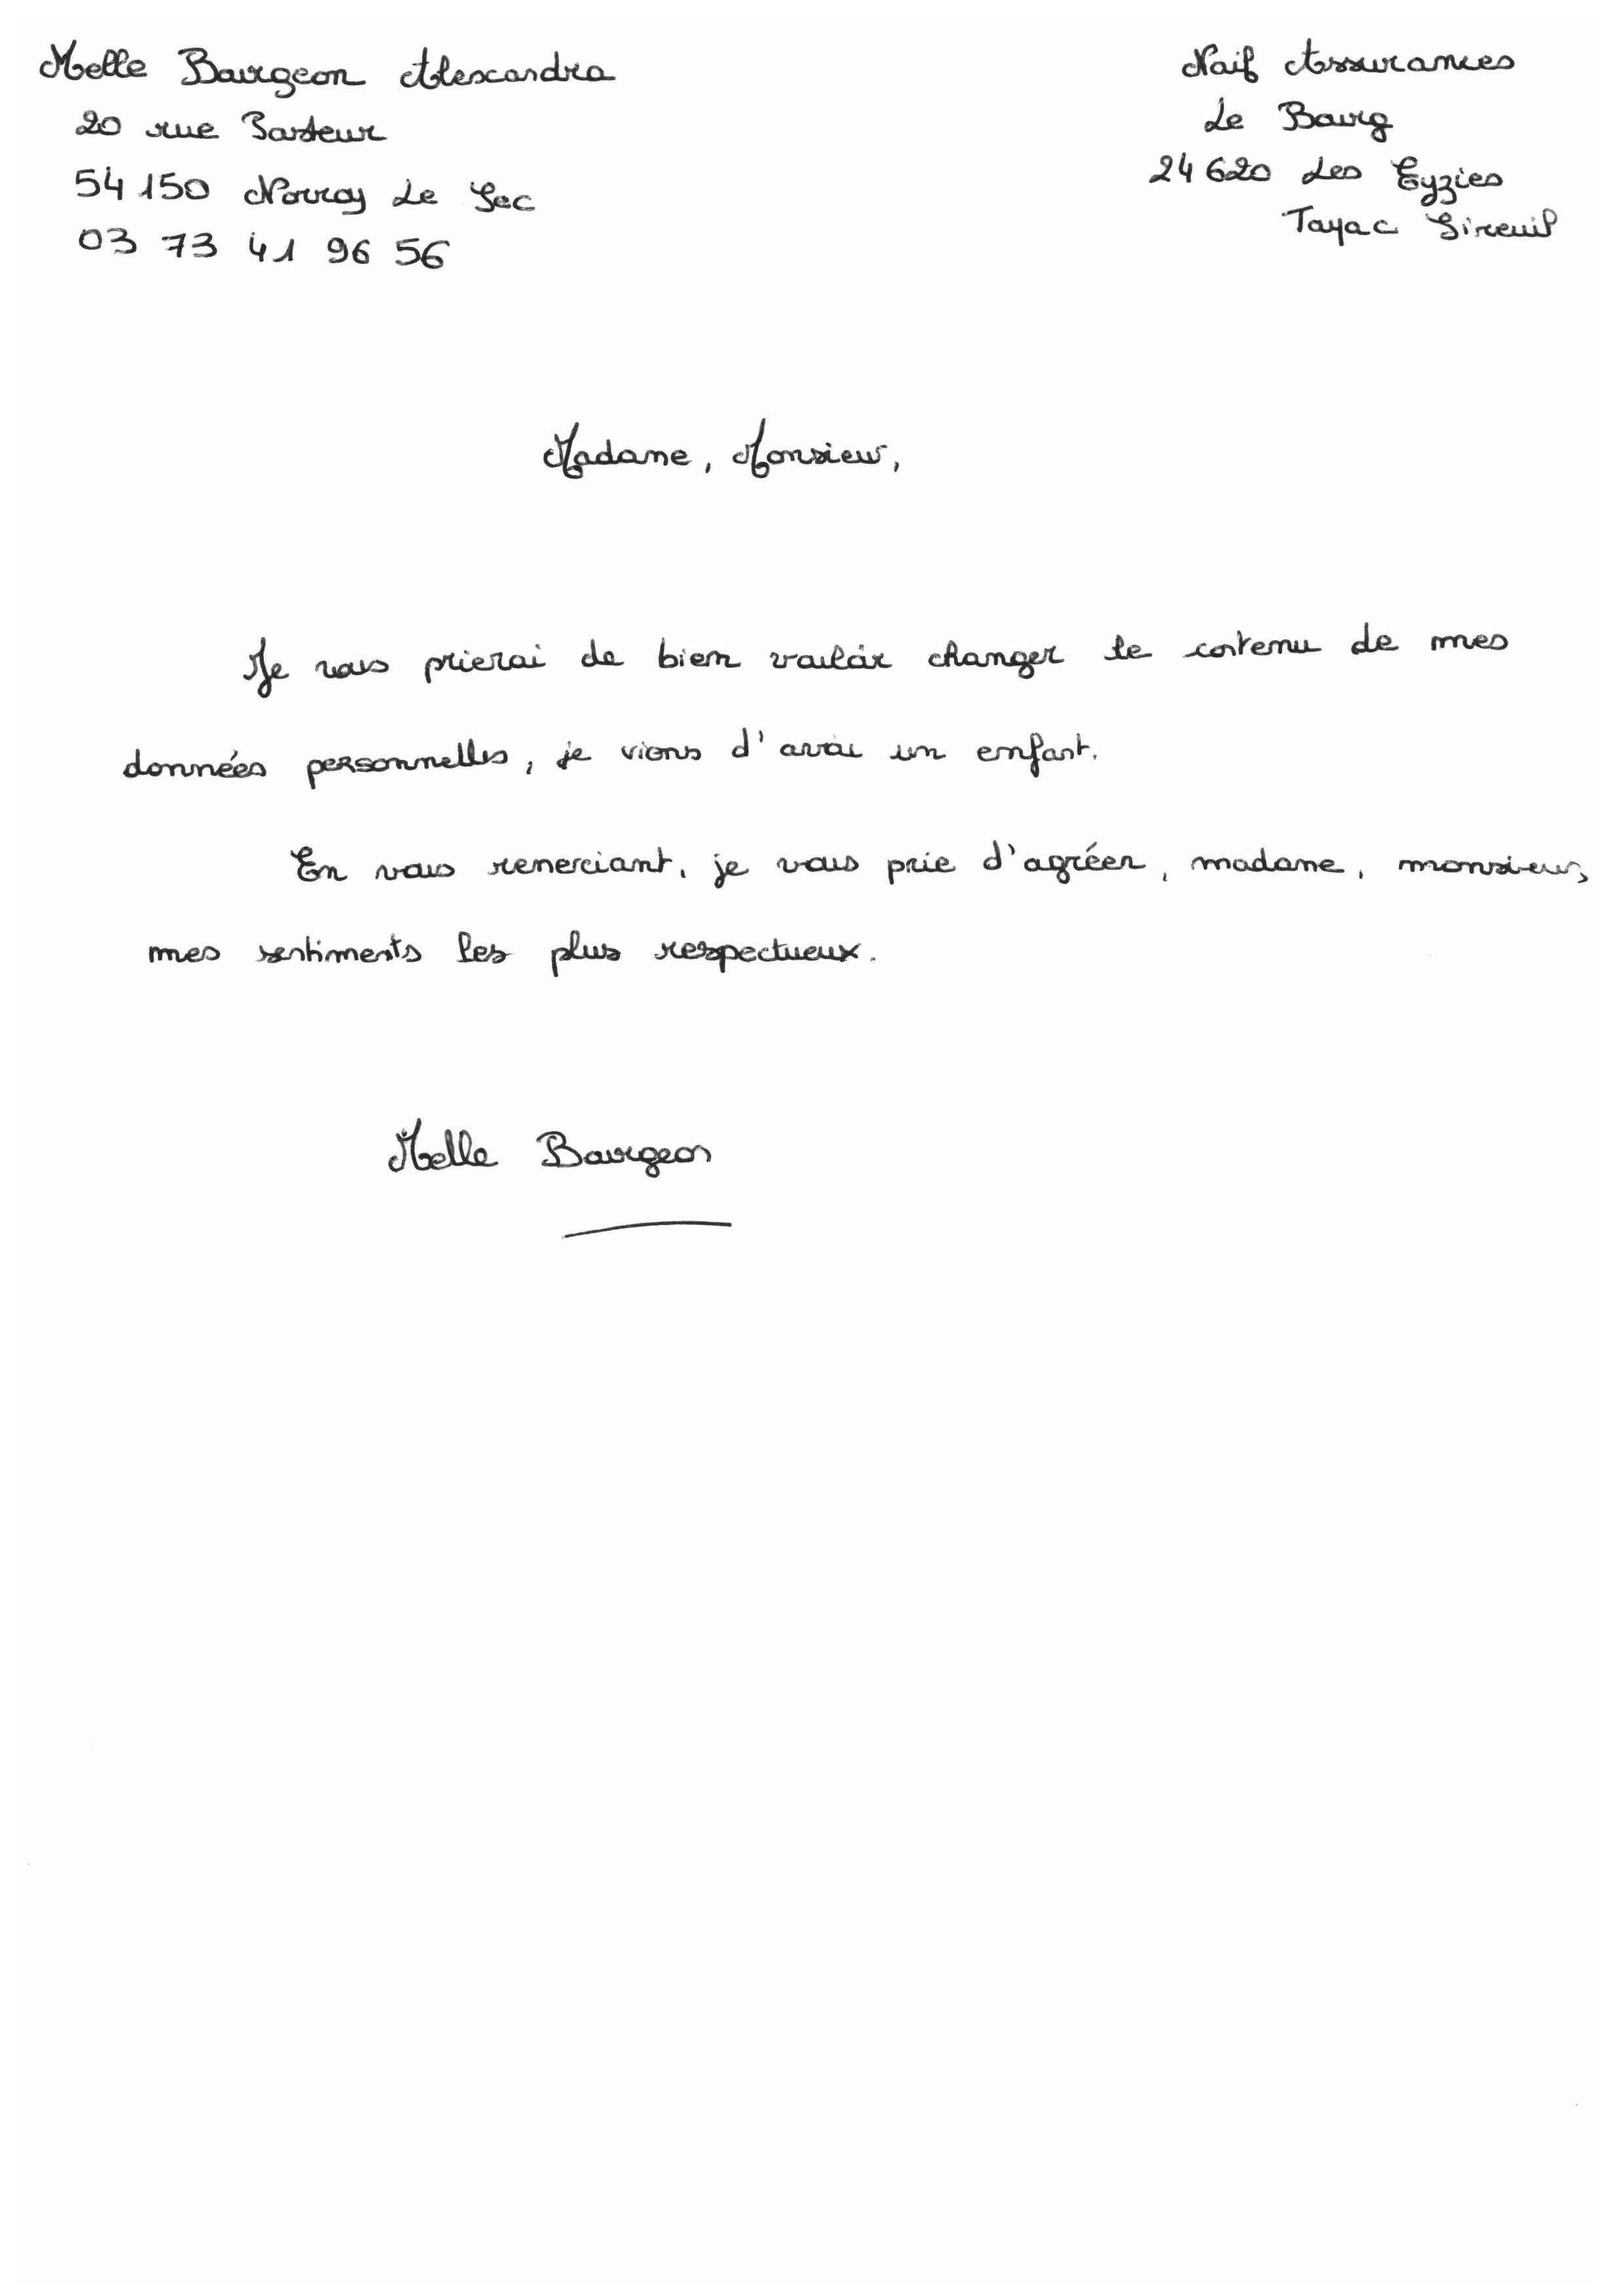 Melle Bourgeon Alexandra
20 rue Pasteur
54 150 Norroy Le Sec
03 73 41 96 56
Naif Assurances
Le Bourg
24 620 Les Eyzies
Tayac Sireuil
Madame, Monsieur,
Je vous prierai de bien vouloir changer le contenu de mes
données personnelles, je viens d'avoir un enfant.
En vous remerciant, je vous prie d'agréer, madame, monsieur,
mes sentiments les plus respectueux.
Melle Bourgeon